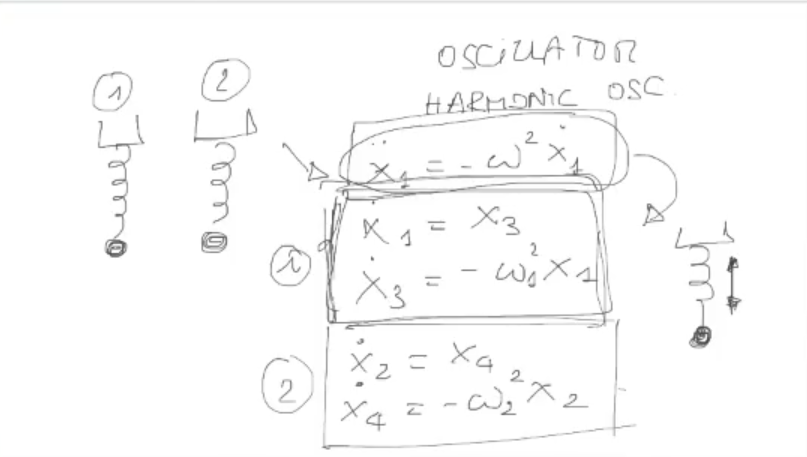 OSCILLATOR
① ② HARMONIC OSC.
ẍ₁ = -ω² ẋ₁
① ẋ₁ = x₃
ẋ₃ = -ω₁² x₁
② ẋ₂ = x₄
ẋ₄ = -ω₂² x₂